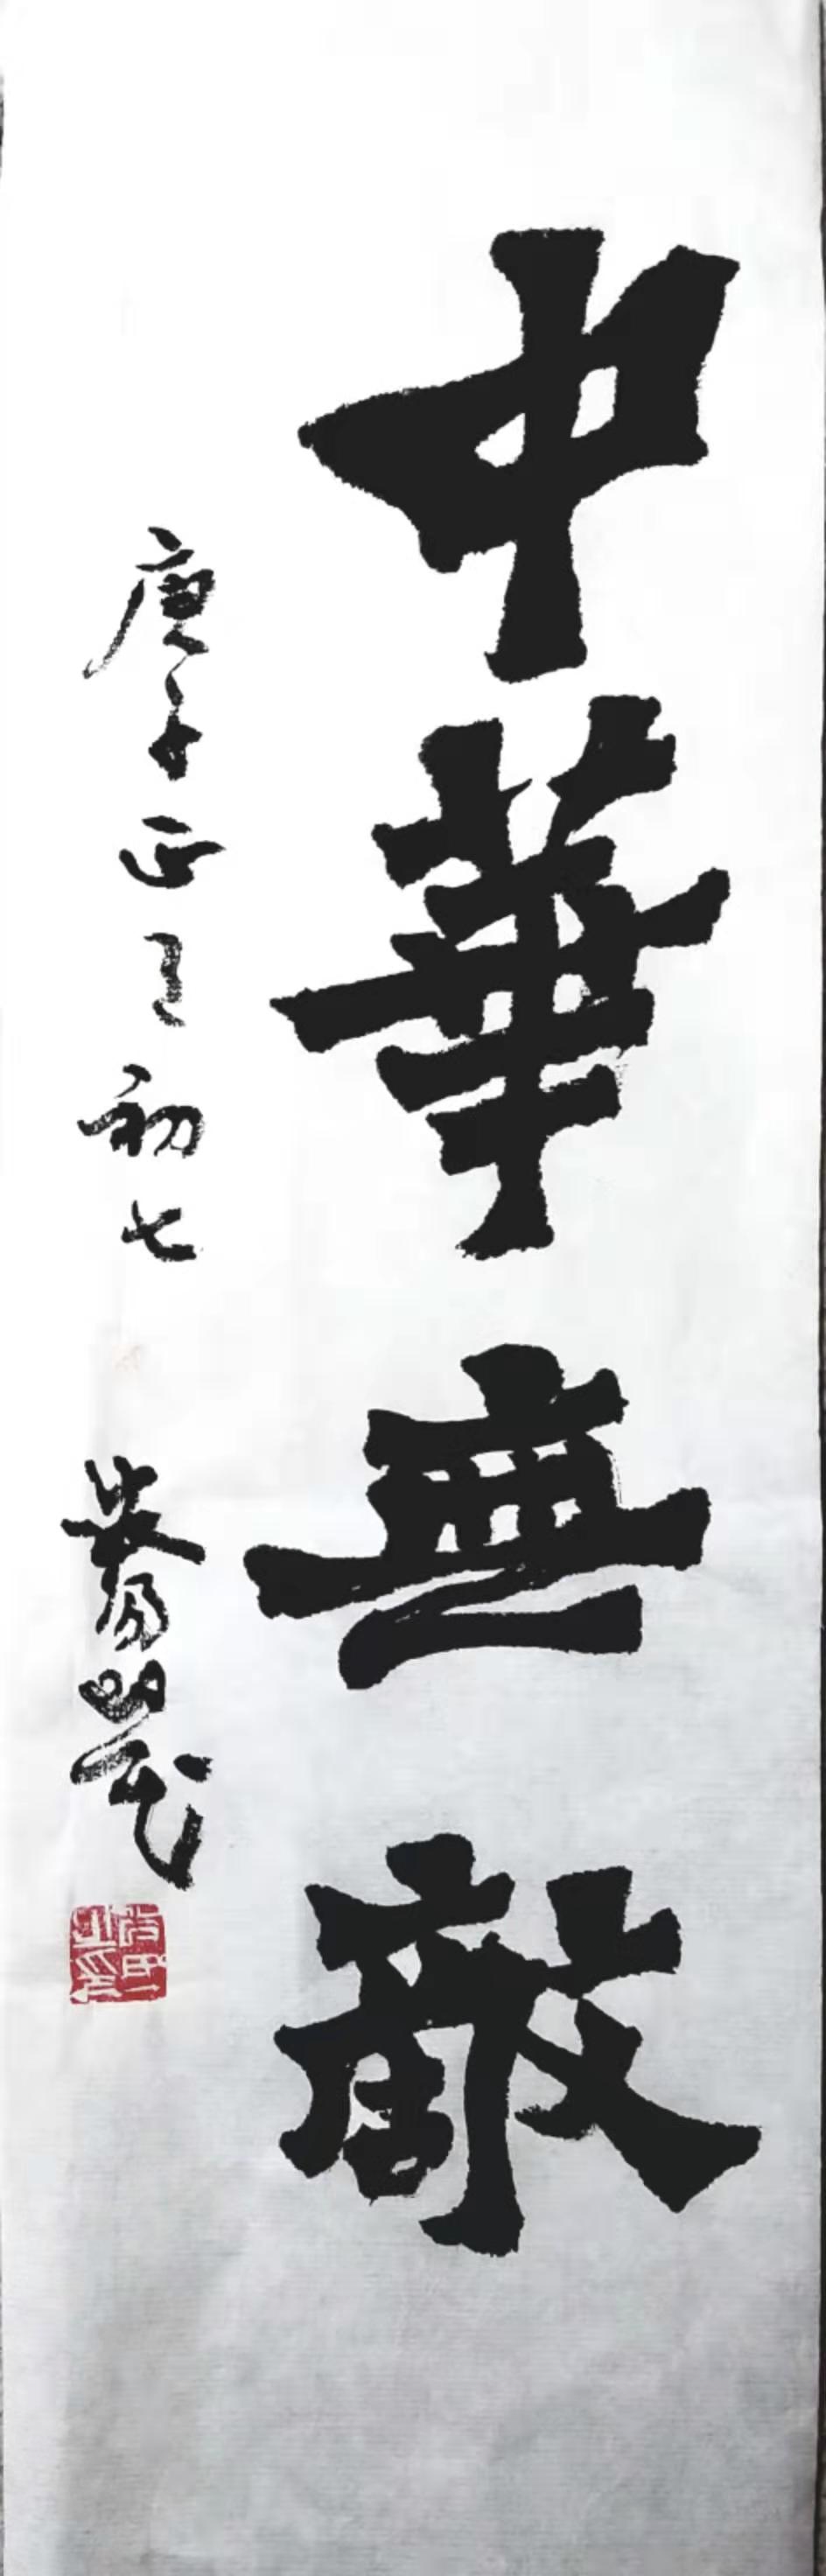 中華無敵
庚子正月初七